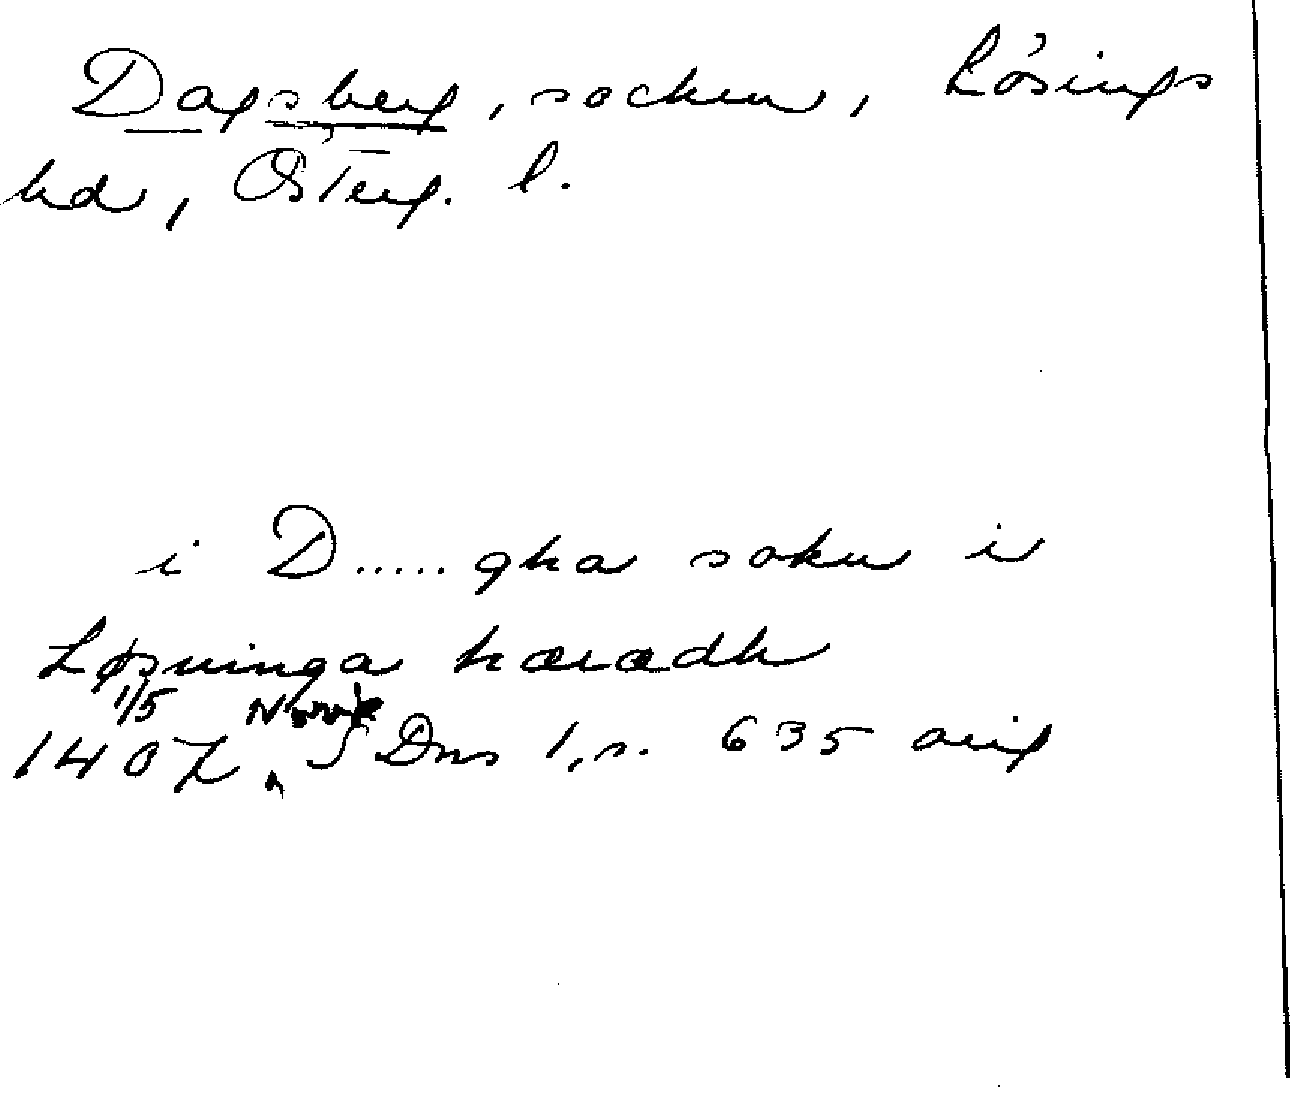 Dagsberg, socken, Lösings
hd, Österg. l.
i D.....gha sokn i
Løsninga hæradh
1/5
1407 SDns 1, s. 635 orig